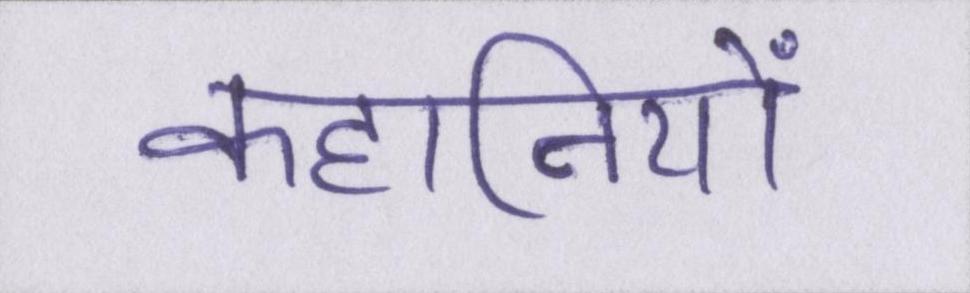 कहानियों